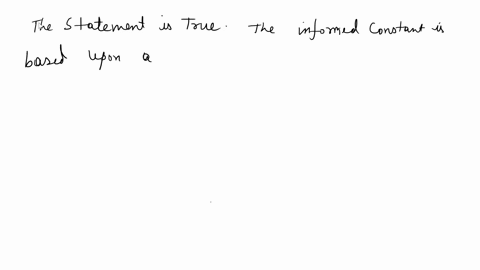 The Statement is True. The informed Constant is
based upon a